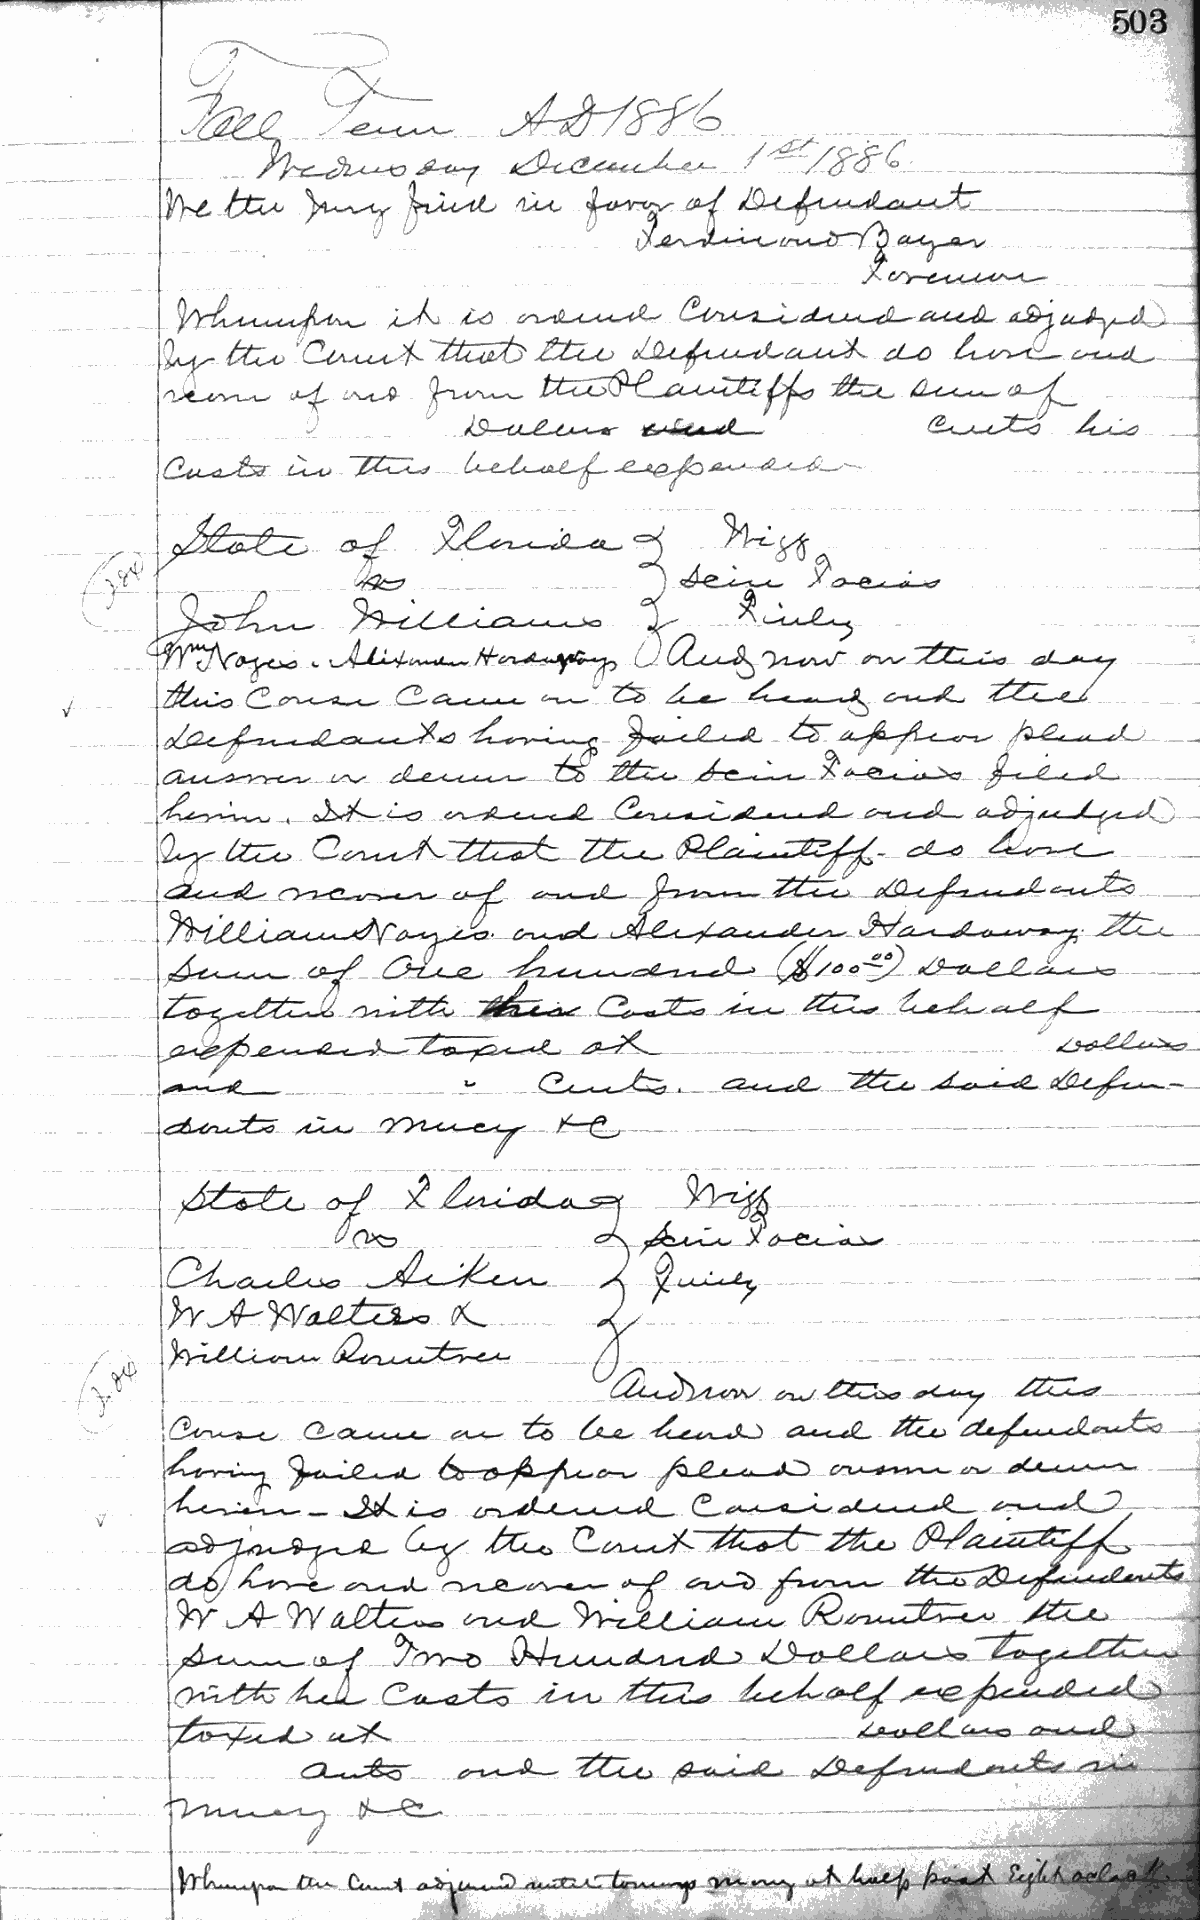 503
Fall Term AD 1886
Wednesday December 1st 1886.
We the Jury find in favor of Defendant
Ferdinand Bayer
Foreman
Whereupon it is ordered Considered and adjudged
by the Court that the Defendant do have and
recover of and from the Plaintiffs the sum of
Dollars and Cents his
Costs in this behalf expended
State of Florida
vs Scire Facias
John Williams
Wm Noyes. Alexander Hardaway And now on this day
this Cause Came on to be heard and the
Defendants having failed to appear plead
answer or demur to the Scire Facias filed
herein. It is ordered Considered and adjudged
by the Court that the Plaintiff do have
and recover of and from the Defendants
William Noyes and Alexander Hardaway the
Sum of One hundred ($100.00) Dollars
together with Costs in this behalf
expended taxed at Dollars
and Cents. and the said Defen-
dants in Mercy &C
State of Florida
vs Scire Facias
Charles Aiken
W A Walters &
William Rountree
And now on this day this
Cause Came on to be heard and the defendants
having failed to appear plead answer or demur
herein - It is ordered Considered and
adjudged by the Court that the Plaintiff
do have and recover of and from the Defendants
W A Walters and William Rountree the
Sum of Two Hundred Dollars together
with her Costs in this behalf expended
taxed at Dollars and
Cents and the said Defendants in
Mercy &C
Whereupon the Court adjourned until tomorrow morning at half past Eight oclock.